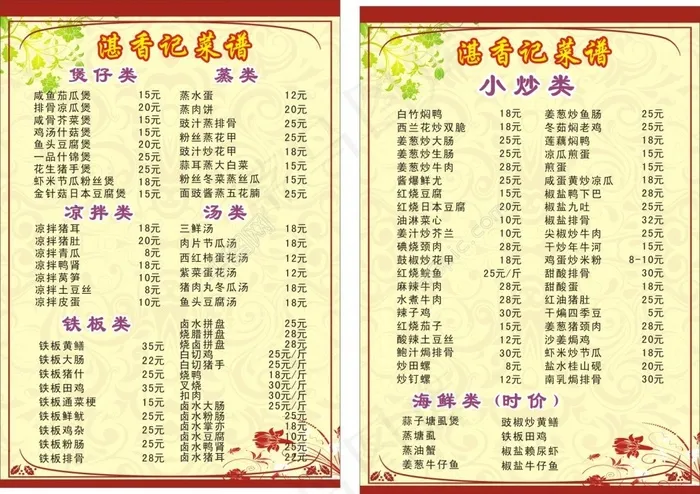 湛香记菜谱
煲仔类
咸鱼茄瓜煲 15元
排骨凉瓜煲 20元
咸骨芥菜煲 15元
鸡汤什菇煲 15元
鱼头豆腐煲 20元
一品什锦煲 25元
花生猪手煲 25元
虾米节瓜粉丝煲 15元
金针菇日本豆腐煲 18元
蒸类
蒸水蛋 12元
蒸肉饼 20元
豉汁蒸排骨 25元
粉丝蒸花甲 25元
豉汁炒花甲 18元
蒜耳蒸大白菜 15元
粉丝冬菜蒸丝瓜 15元
面豉酱蒸五花腩 25元
凉拌类
凉拌猪耳 18元
凉拌猪肚 20元
凉拌青瓜 8元
凉拌鸭肾 15元
凉拌莴笋 10元
凉拌土豆丝 8元
凉拌皮蛋 10元
汤类
三鲜汤 18元
肉片节瓜汤 18元
西红柿蛋花汤 12元
紫菜蛋花汤 12元
猪肉丸冬瓜汤 18元
鱼头豆腐汤 18元
铁板类
铁板黄鳝 35元
铁板大肠 22元
铁板猪什 25元
铁板田鸡 35元
铁板通菜梗 15元
铁板鲜鱿 25元
铁板鸡杂 25元
铁板粉肠 25元
铁板排骨 28元
卤水拼盘 25元
烧腊拼盘 28元
烧卤拼盘 25元
白切鸡 25元/斤
白切猪手 25元/斤
烧鸭 18元/斤
叉烧 30元/斤
扣肉 30元/斤
卤水大肠 25元
卤水粉肠 25元
卤水掌亦 18元
卤水豆腐 10元
卤水鸭肾 25元
卤水猪耳 22元
湛香记菜谱
小炒类
白竹焖鸭 18元
西兰花炒双脆 18元
姜葱炒大肠 25元
姜葱炒生肠 25元
姜葱炒牛肉 28元
酱爆鲜尤 25元
红烧豆腐 15元
红烧日本豆腐 18元
油淋菜心 10元
姜葱炒猪什 22元
碘烧颈肉 28元
豉椒炒花甲 18元
红烧鲩鱼 25元/斤
麻辣牛肉 28元
水煮牛肉 28元
辣子鸡 30元
红烧茄子 15元
酸辣土豆丝 12元
鲍汁焗排骨 30元
炒钉螺 12元
姜葱炒鱼肠 25元
冬菇焖老鸡 25元
莲藕焖鸭 18元
凉瓜煎蛋 15元
煎蛋 15元
咸蛋黄炒凉瓜 18元
椒盐鸭下巴 28元
椒盐九吐 25元
椒盐排骨 30元
尖椒炒牛肉 25元
干炒牛牛河 15元
鸡蛋炒米粉 8-10元
甜酸排骨 30元
甜酸蛋 18元
红油猪肚 25元
干煸四季豆 15元
姜葱猪颈肉 28元
沙姜焗鸡 20元
虾米炒节瓜 18元
盐水桂山砚 20元
南乳焗排骨 30元
海鲜类（时价）
蒜子塘虱煲
蒸塘虱
蒸油蟹
姜葱牛仔鱼
豉椒炒黄鳝
铁板田鸡
椒盐赖尿虾
椒盐牛仔鱼